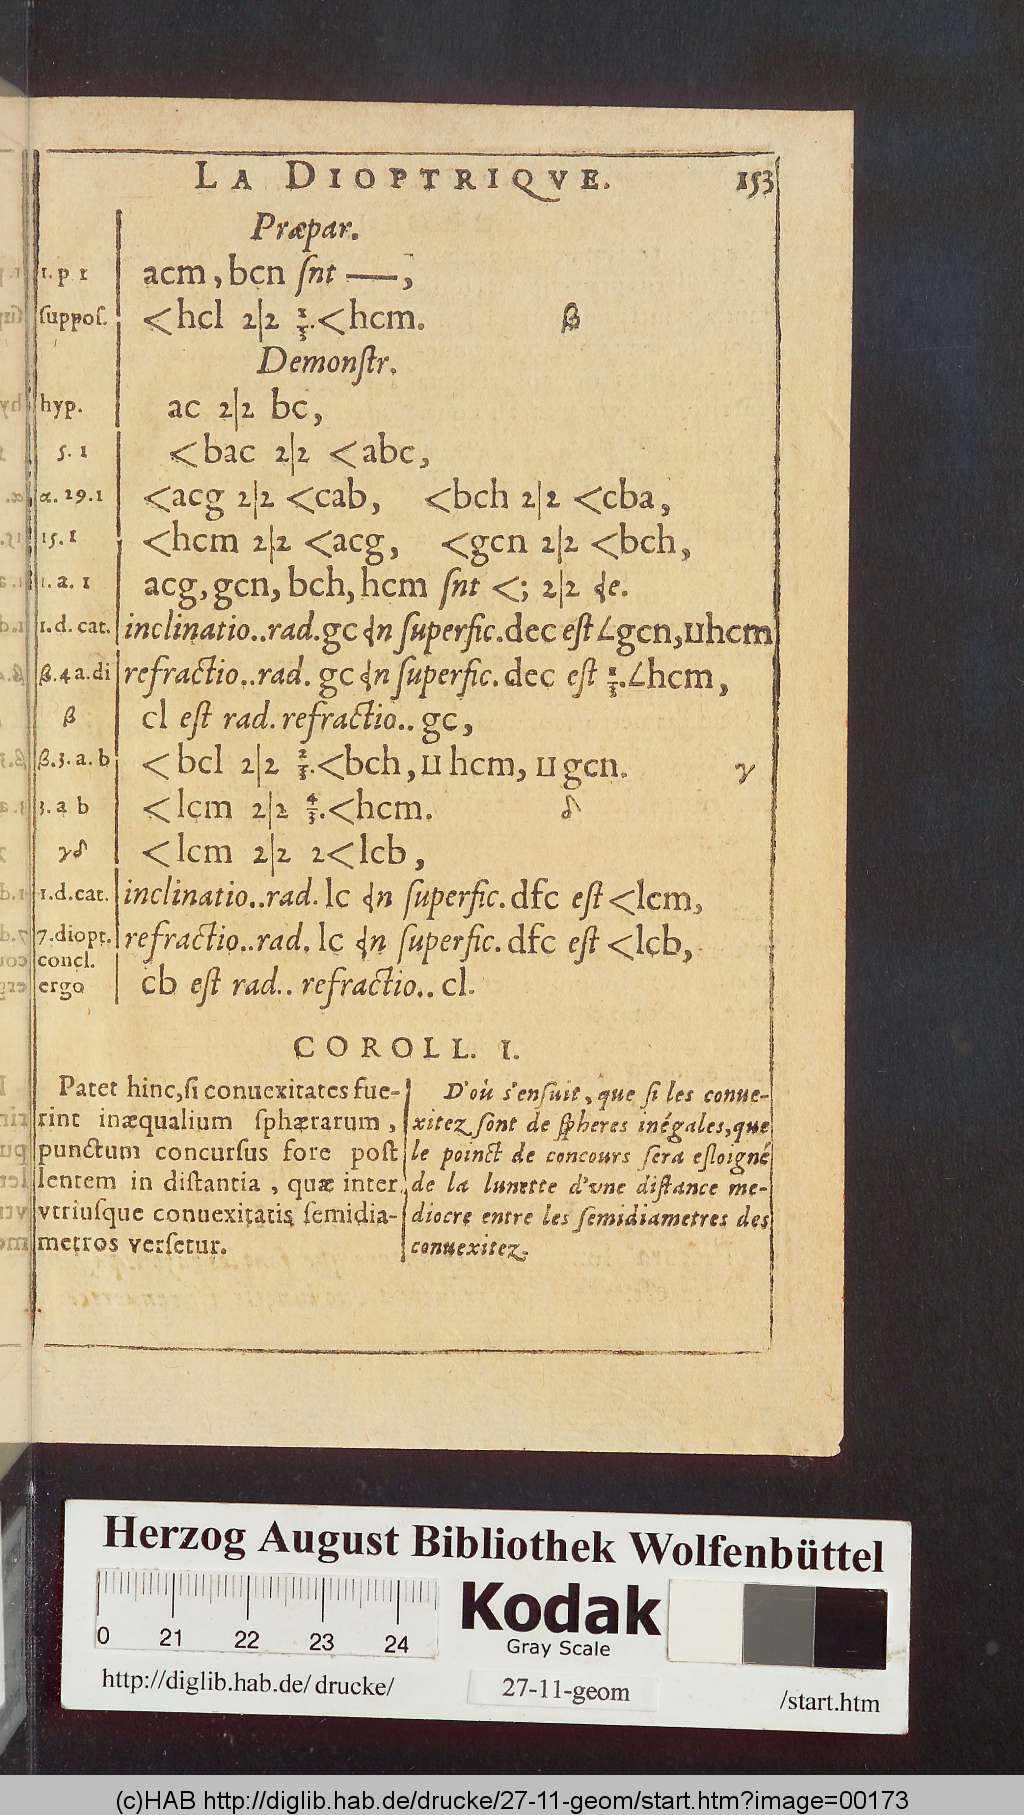 LA DIOPTRIQVE. 153
Præpar.
1. p 1 acm, bcn ſnt —,
ſuppoſ. <hcl 2|2 1/3.<hcm. β
Demonſtr.
hyp. ac 2|2 bc,
5. 1 <bac 2|2 <abc,
α. 29.1 <acg 2|2 <cab, <bch 2|2 <cba,
15. 1 <hcm 2|2 <acg, <gcn 2|2 <bch,
1. a. 1 acg, gcn, bch, hcm ſnt <; 2|2 de.
1. d. cat. inclinatio..rad. gc dn ſuperfic. dec eſt ∠gcn, ⊔hcm
β. 4 a. di refractio..rad. gc dn ſuperfic. dec eſt 1/3.∠hcm,
β cl eſt rad. refractio.. gc,
β. 3. a. b <bcl 2|2 2/3.<bch, ⊔ hcm, ⊔ gcn. γ
3. a b <lcm 2|2 4/3.<hcm. δ
γδ <lcm 2|2 2<lcb,
1. d. cat. inclinatio..rad. lc dn ſuperfic. dfc eſt <lcm,
7. diopt. refractio..rad. lc dn ſuperfic. dfc eſt <lcb,
concl.
ergo cb eſt rad.. refractio.. cl.
COROLL. I.
Patet hinc, ſi conuexitates fue-
rint inæqualium ſphærarum,
punctum concurſus fore poſt
lentem in diſtantia, quæ inter
vtriuſque conuexitatis ſemidia-
metros verſetur.
D'où s'enſuit, que ſi les conue-
xitez ſont de ſpheres inégales, que
le poinct de concours ſera eſloigné
de la lunette d'vne diſtance me-
diocre entre les ſemidiametres des
conuexitez.
Herzog August Bibliothek Wolfenbüttel
Kodak
Gray Scale
0 21 22 23 24
http://diglib.hab.de/drucke/ 27-11-geom /start.htm
(c)HAB http://diglib.hab.de/drucke/27-11-geom/start.htm?image=00173